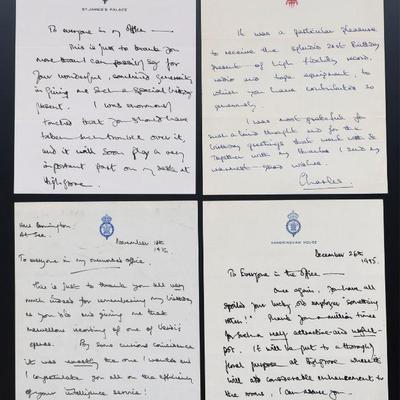 ST. JAMES'S PALACE
To everyone in my Office —
This is just to thank you
more than I can possibly say for
your wonderful, combined generosity
in giving me such a special birthday
present. I was enormously
touched that you should have
taken such trouble over it,
and it will soon play a very
important part on my desk at
Highgrove.
It was a particular pleasure
to receive the splendid 21st Birthday
present of high fidelity record,
radio and tape equipment, to
which you have contributed so
generously.
I was most grateful for
such a kind thought and for the
birthday greetings that went with it.
Together with my thanks I send my
warmest good wishes.
Charles.
At Sea
November 16th
To everyone in my overworked office.
This is just to thank you all very
much indeed for remembering my birthday
as you did and giving me that
marvellous recording of one of Verdi's
operas. By some curious coincidence
it was exactly the one I wanted and
I congratulate you all on the efficiency
of your intelligence service!
SANDRINGHAM HOUSE
December 26th
1995.
To Everyone in the Office —
Once again, you have all
spoiled your lucky old employer something
rotten! Thank you a million times
for such a very attractive and useful
pot. It will be put to a thoroughly
good purpose at Highgrove where it
will add considerable enhancement to
the rooms, I can assure you.